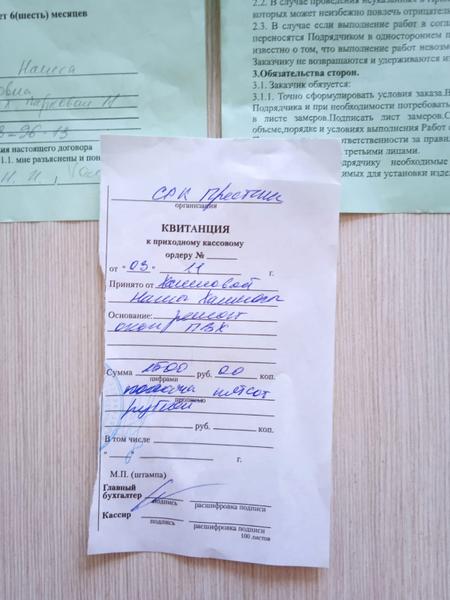 ет 6(шесть) месяцев
2.2. В случае
которых может неизбежно повлечь отрицател
2.3. В случае если выполнение работ в согла
переносятся Подрядчиком в одностороннем п
известно о том, что выполнение работ невозм
Заказчику не возвращаются и удерживаются и
3.Обязательства сторон.
3.1. Заказчик обязуется:
3.1.1. Точно сформулировать условия заказа.В
Подрядчика и при необходимости потребоват
в листе замеров.Подписать лист замеров.С
объеме,порядке и условиях выполнения Работ о
ответственности за прави
третьими лицами.
одрядчику необходимые
имых для установки издел
ия настоящего договора
1.1. мне разъяснены и пон
СРК Престиж
организация
КВИТАНЦИЯ
к приходному кассовому
ордеру №
от "03" 11 г.
Принято от
Основание: ремонт
окон ПВХ
Сумма 1500 руб. 00 коп.
цифрами
пятсот
прописью
рублей
руб. коп.
В том числе
" " г.
М.П. (штампа)
Главный
бухгалтер
подпись расшифровка подписи
Кассир
подпись расшифровка подписи
100 листов